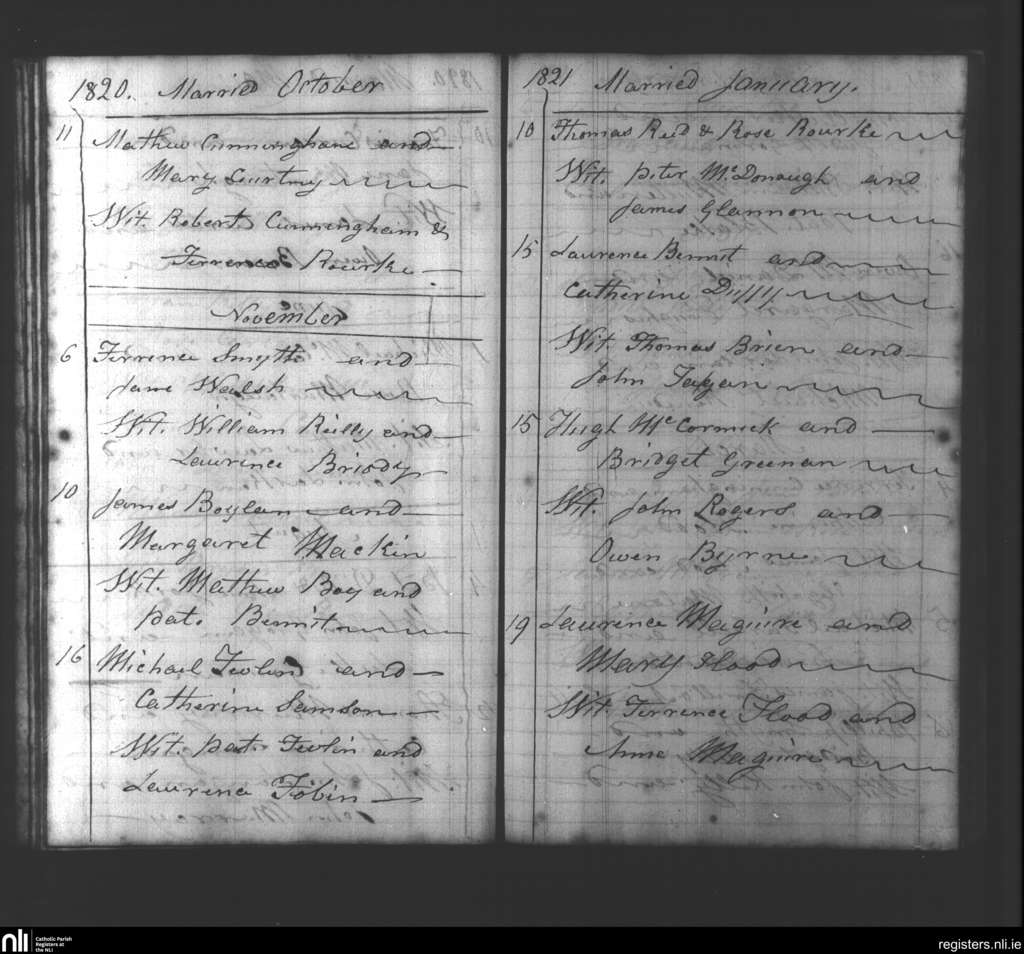 1820. Married October
11 Mathew Cunningham and
Mary Courtny
Wit. Robert Cunningham &
Terrence Rourke
November
6 Terrence Smyth and
Jane Walsh
Wit. William Reilly and
Laurence Briody
10 James Boylan and
Margaret Mackin
Wit. Mathew Boy and
Pat. Bennit
16 Michael Tevlin and
Catherine Samson
Wit. Pat. Tevlin and
Laurence Tobin
1821 Married January.
10 Thomas Reid & Rose Rourke
Wit. Peter McDonaugh and
James Glannon
15 Laurence Bennit and
Catherine Duffy
Wit. Thomas Brien and
John Fagan
15 Hugh McCormick and
Bridget Greenan
Wit. John Rogers and
Owen Byrne
19 Laurence Maguire and
Mary Flood
Wit. Terrence Flood and
Anne Maguire
nli Catholic Parish
Registers at
the NLI
registers.nli.ie